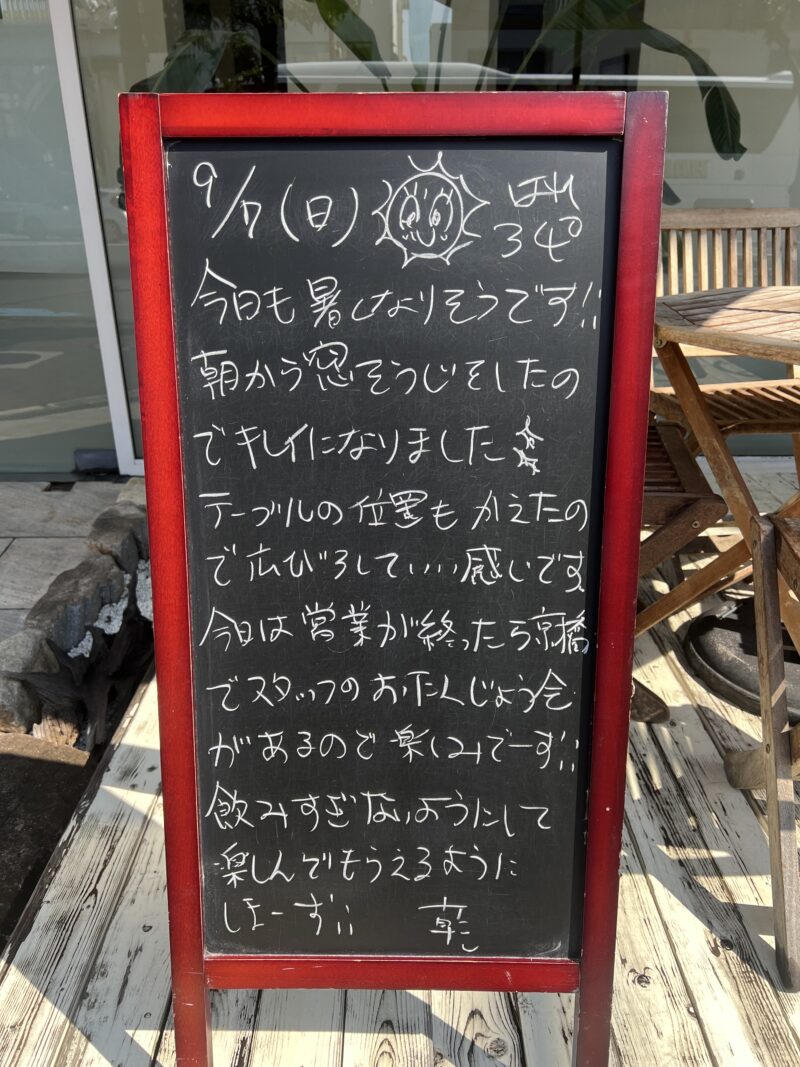 9/7(日) はれ 34°
今日も暑くなりそうです!!
朝から窓そうじをしたの
でキレイになりました
テーブルの位置もかえたの
で広びろしていい感じです
今日は営業が終ったら京橋
でスタッフのおたんじょう会
があるので楽しみでーす!!
飲みすぎないようにして
楽しんでもらえるように
しまーす!! 乾